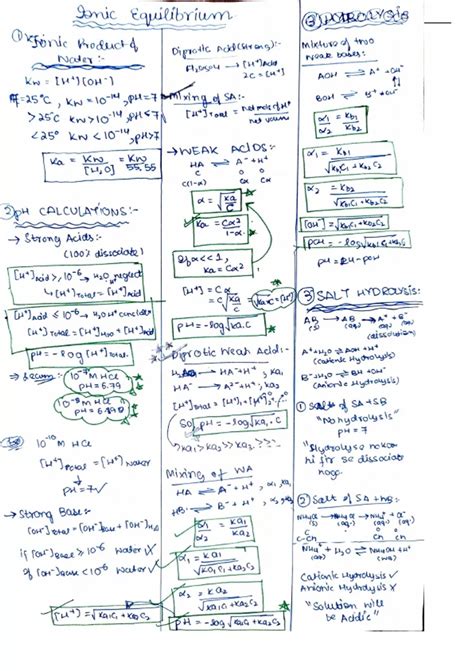 Ionic Equilibrium
① Ionic Product of
Water:-
Kw = [H⁺][OH⁻]
T=25°C, Kw=10⁻¹⁴, pH=7
>25°C Kw>10⁻¹⁴, pH<7
<25° Kw<10⁻¹⁴, pH>7
Ka = Kw/[H₂O] = Kw/55.55
② pH CALCULATIONS:-
→ Strong Acids:-
(100% dissociate)
[H⁺]Acid > 10⁻⁶ → H₂O neglect
↳ [H⁺]Total = [H⁺]Acid
[H⁺]Acid ≤ 10⁻⁶ → H₂O
[H⁺]Total = [H⁺]H₂O + [H⁺]Acid
pH = -log [H⁺]total
10⁻⁷ M HCl
pH = 6.79
10⁻⁸ M HCl
pH = 6.98
10⁻¹⁰ M HCl
[H⁺]Total = [H⁺] Water
pH = 7✓
→ Strong Base:-
[OH⁻]total = [OH⁻]Base + [OH⁻]
if [OH⁻]Base ≥ 10⁻⁶ Water X
if [OH⁻]Base < 10⁻⁶ Water ✓
[H⁺] = √Ka₁C₁ + Ka₂C₂
Diprotic Acid (Strong):-
H₂SO₄ → [H⁺]Acid
2C = [H⁺]
Mixing of SA:-
[H⁺]Total = Net mol of H⁺/net volume
→ WEAK ACIDS:-
HA ⇌ A⁻ + H⁺
C O O
C(1-α) Cα Cα
α = √Ka/C
Ka = Cα²/1-α
If α<<1,
Ka = Cα²
[H⁺] = Cα
= C √Ka/C = √Ka.C = [H⁺]
pH = -log √Ka.C
Diprotic Weak Acid:-
H₂A → HA⁻ + H⁺, Ka₁
HA⁻ → A²⁻ + H⁺, Ka₂
[H⁺]total = [H⁺]₁ + [H⁺]₂
So, pH = -log √Ka₁.C
Ka₁ >> Ka₂ >> Ka₃
Mixing of WA
HA ⇌ A⁻ + H⁺, α₁, Ka₁
HB ⇌ B⁻ + H⁺, α₂, Ka₂
α₁/α₂ = Ka₁/Ka₂
α₁ = Ka₁/√Ka₁C₁ + Ka₂C₂
α₂ = Ka₂/√Ka₁C₁ + Ka₂C₂
pH = -log √Ka₁C₁ + Ka₂C₂
HYDROLYSIS
Mixture of two
weak bases:-
AOH ⇌ A⁺ + OH⁻
BOH ⇌ B⁺ + OH⁻
α₁/α₂ = Kb₁/Kb₂
α₁ = Kb₁/√Kb₁C₁ + Kb₂C₂
α₂ = Kb₂/√Kb₁C₁ + Kb₂C₂
[OH⁻] = √Kb₁C₁ + Kb₂C₂
pOH = -log √Kb₁C₁ + Kb₂C₂
pH = 14 - pOH
③ SALT HYDROLYSIS:-
AB(s) → AB(aq) → A⁺(aq) + B⁻(aq)
(dissolution)
A⁺ + H₂O ⇌ AOH + H⁺
(Cationic Hydrolysis)
B⁻ + H₂O ⇌ BH + OH⁻
(Anionic Hydrolysis)
① Salts of SA + SB
"No hydrolysis"
pH = 7
"Hydrolyse nokar
hi fir se dissociate
hoge.
② Salt of SA + WB:-
NH₄Cl(s) → NH₄⁺(aq) + Cl⁻(aq)
NH₄⁺ + H₂O ⇌ NH₄OH + H⁺
Cationic Hydrolysis ✓
Anionic Hydrolysis X
"Solution will
be Acidic"